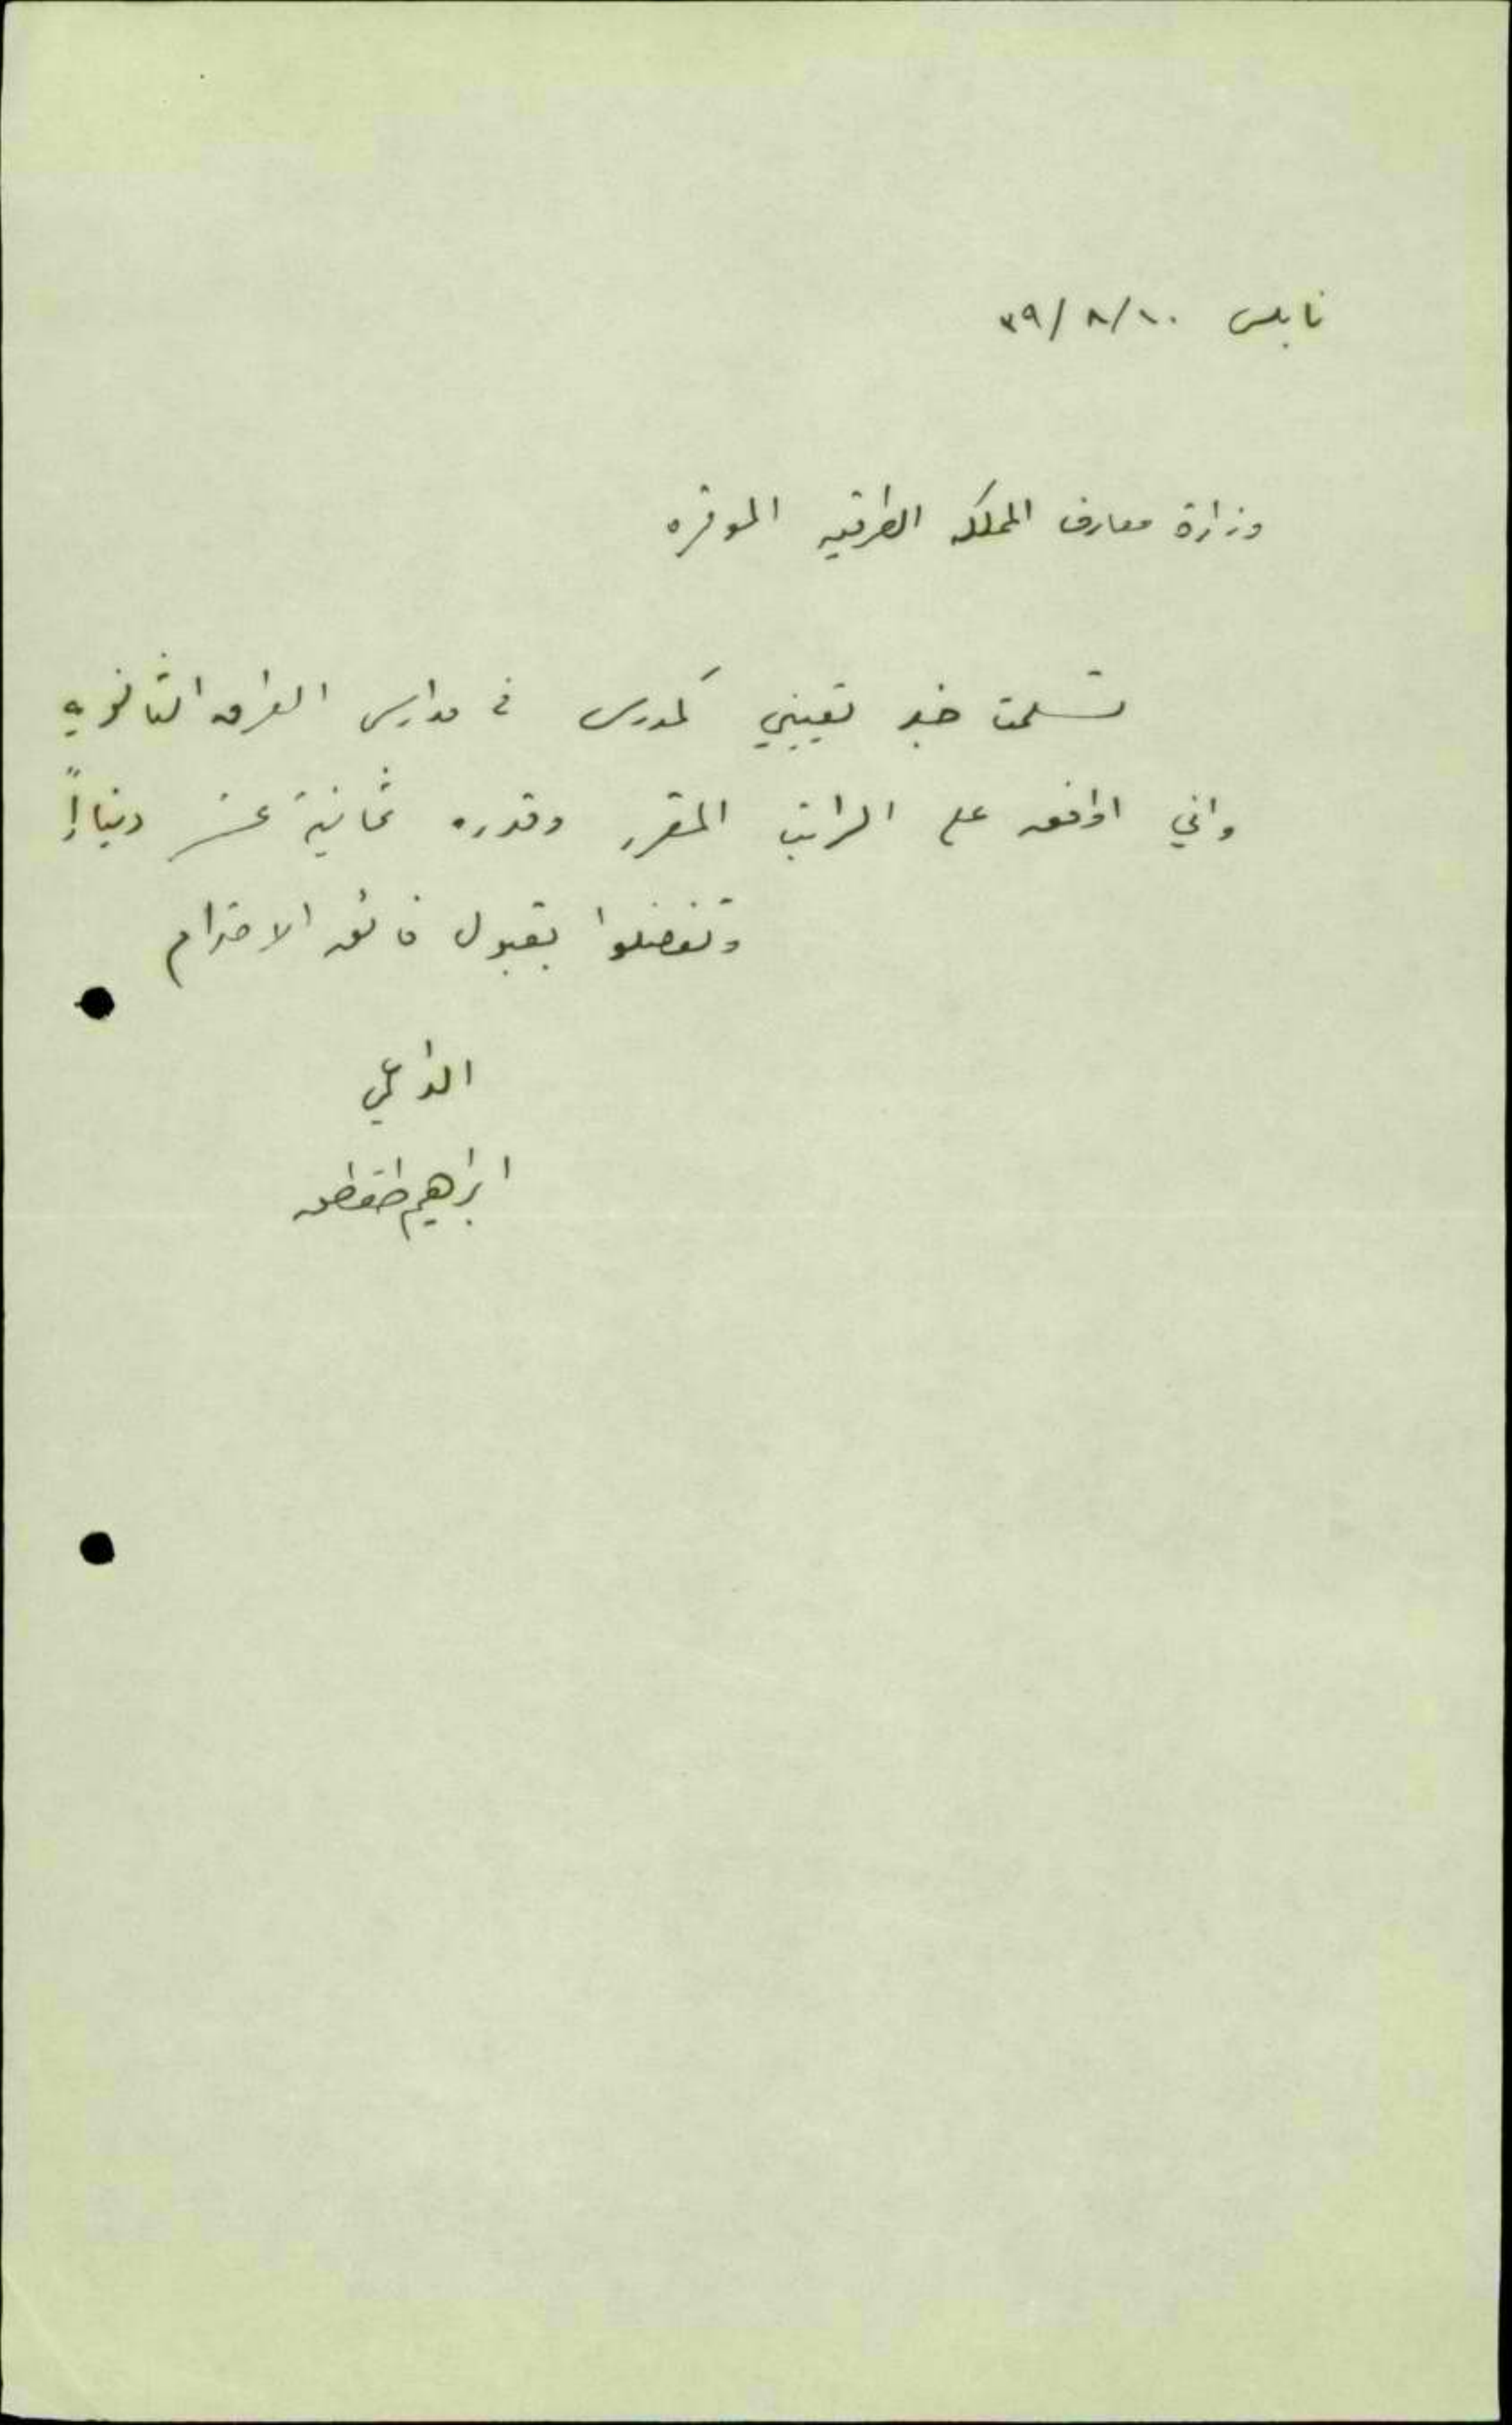 نابلس ١٠/٨/٣٩
وزارة معارف المملكه العراقيه الموقره
تسلمت خبر تعييني كمدرس في مدارس العراق الثانويه
واني اوافق على الراتب المقرر وقدره ثمانية عشر ديناراً
وتفضلوا بقبول فائق الاحترام
الداعي
ابراهيم طقطق